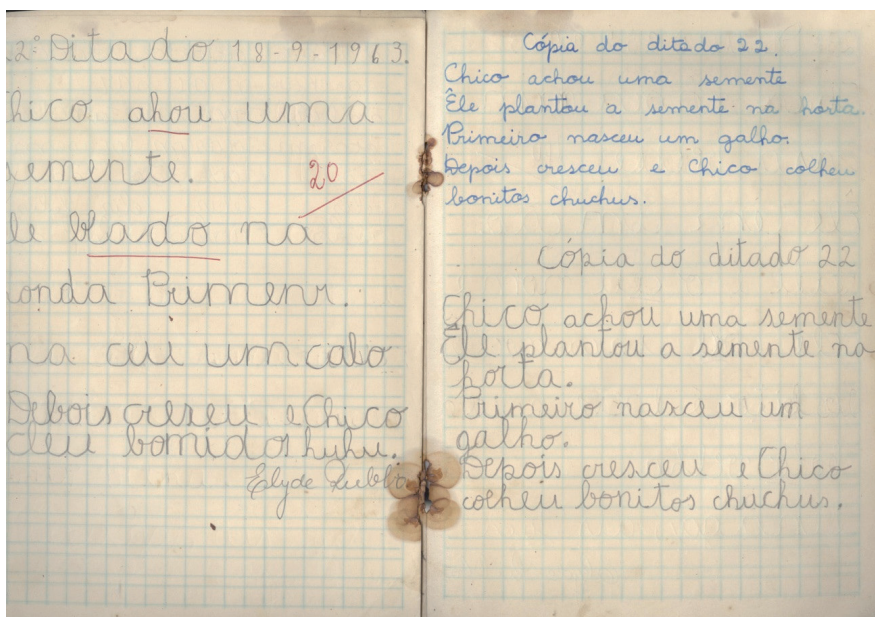 22º Ditado 18-9-1963.
Chico ahou uma
semente.
20
le blado na
onda Primenr.
na ceu um calo
Debois creseu e Chico
cleu bomidos huhu.
Elyde
Cópia do ditado 22.
Chico achou uma semente
Êle plantou a semente na horta.
Primeiro nasceu um galho.
Depois cresceu e Chico colheu
bonitos chuchus.
Cópia do ditado 22
Chico achou uma semente
Êle plantou a semente na
horta.
Primeiro nasceu um
galho.
Depois cresceu e Chico
colheu bonitos chuchus.